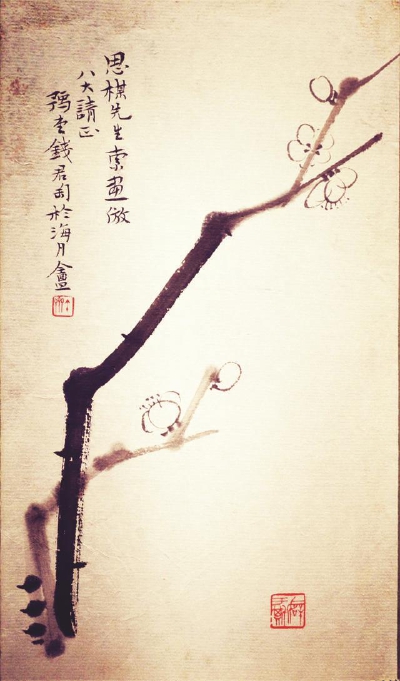 思楳先生索畫倣
八大請正
豫堂錢君匋於海月盦